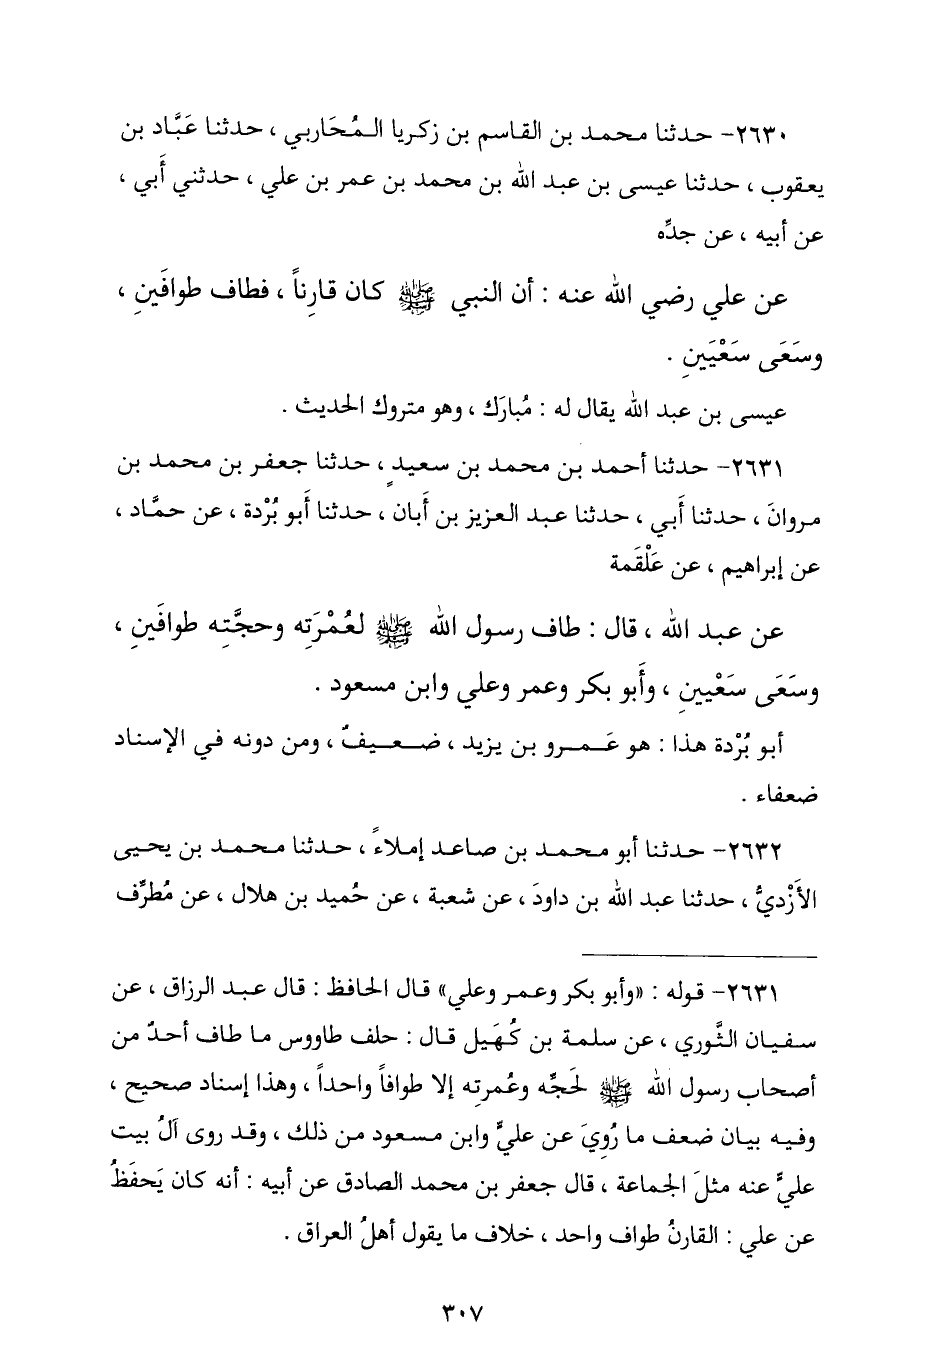 ٢٦٣٠- حدثنا محمد بن القاسم بن زكريا المُحَاربي ، حدثنا عَبَّاد بن
يعقوب ، حدثنا عيسى بن عبد الله بن محمد بن عمر بن علي ، حدثني أَبي ،
عن أبيه ، عن جدِّه
عن علي رضي الله عنه : أن النبي ﷺ كان قارِناً ، فطاف طوافَينِ ،
وسَعَى سَعْيَينِ .
عيسى بن عبد الله يقال له : مُبارَك ، وهو متروك الحديث .
٢٦٣١- حدثنا أحمد بن محمد بن سعيدٍ ، حدثنا جعفر بن محمد بن
مروانَ ، حدثنا أَبي ، حدثنا عبد العزيز بن أَبان ، حدثنا أَبو بُرْدة ، عن حمَّاد ،
عن إبراهيم ، عن عَلْقَمة
عن عبد الله ، قال : طاف رسول الله ﷺ لعُمْرَتِه وحجَّتِه طوافَينِ ،
وسَعَى سَعْيينِ ، وأَبو بكر وعمر وعلي وابن مسعود .
أبو بُرْدة هذا : هو عَمرو بن يزيد ، ضعيفٌ ، ومن دونه في الإسناد
ضعفاء .
٢٦٣٢- حدثنا أبو محمد بن صاعد إملاءً ، حدثنا محمد بن يحيى
الأَزْديُّ ، حدثنا عبد الله بن داودَ ، عن شعبة ، عن حُميد بن هلال ، عن مُطرِّف
٢٦٣١- قوله : «وأبو بكر وعمر وعلي» قال الحافظ : قال عبد الرزاق ، عن
سفيان الثَّوري ، عن سلمة بن كُهَيل قال : حلف طاووس ما طاف أحدٌ من
أصحاب رسول الله ﷺ لحَجِّه وعُمرتِه إلا طوافاً واحداً ، وهذا إسناد صحيح ،
وفيه بيان ضعف ما رُوِيَ عن عليٍّ وابن مسعود من ذلك ، وقد روى آلُ بيت
عليٍّ عنه مثلَ الجماعة ، قال جعفر بن محمد الصادق عن أبيه : أنه كان يَحفَظُ
عن علي : القارنُ طواف واحد ، خلاف ما يقول أهلُ العراق .
٣٠٧